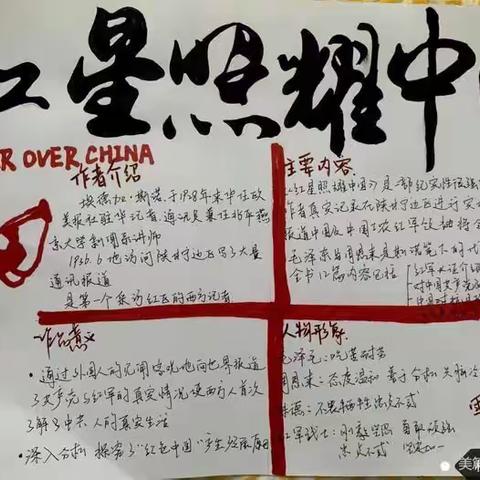 红星照耀中
R OVER CHINA
作者介绍
埃德加·斯诺于1928年来华任欧
美报社驻华记者、通讯员兼任北平燕
京大学新闻系讲师
1936.6他访问陕甘宁边区写了大量
通讯报道
是第一个采访红区的西方记者
主要内容
《红星照耀中国》是一部纪实性很强
作者真实记录在陕甘宁边区进行实
报道中国及中国工农红军
毛泽东与周恩来是斯诺笔下的
全书12篇内容包括
作品意义
·通过外国人的见闻客观地向世界报道
了共产党与红军的真实情况使西方人首次
了解了中共人的真实生活
·深入分析 探究了"红色中国"产生发展原因
人物形象
毛泽东:吃苦耐劳
周恩来:态度温和 善于分析
不畏牺牲
红军战士:刚毅坚强 勇敢顽强
美篇